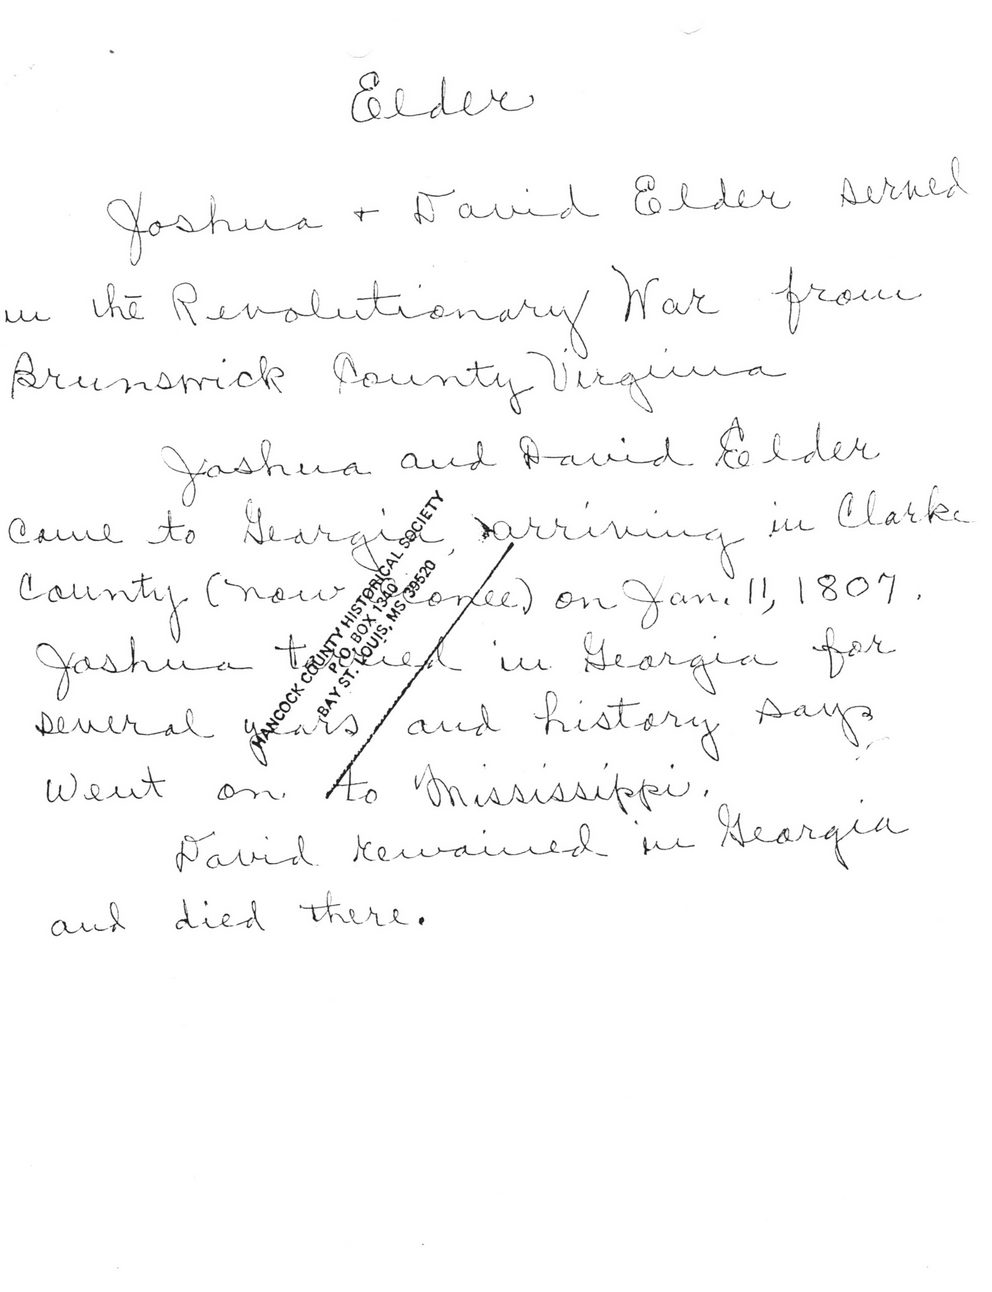 Elder
Joshua + David Elder served
in the Revolutionary War from
Brunswick County Virginia
Joshua and David Elder
came to Georgia, arriving in Clarke
County (now Oconee) on Jan. 11, 1807.
Joshua in Georgia for
several years and history says
went on to Mississippi.
David remained in Georgia
and died there.
HANCOCK COUNTY HISTORICAL SOCIETY
P.O. BOX 1340
BAY ST. LOUIS, MS 39520